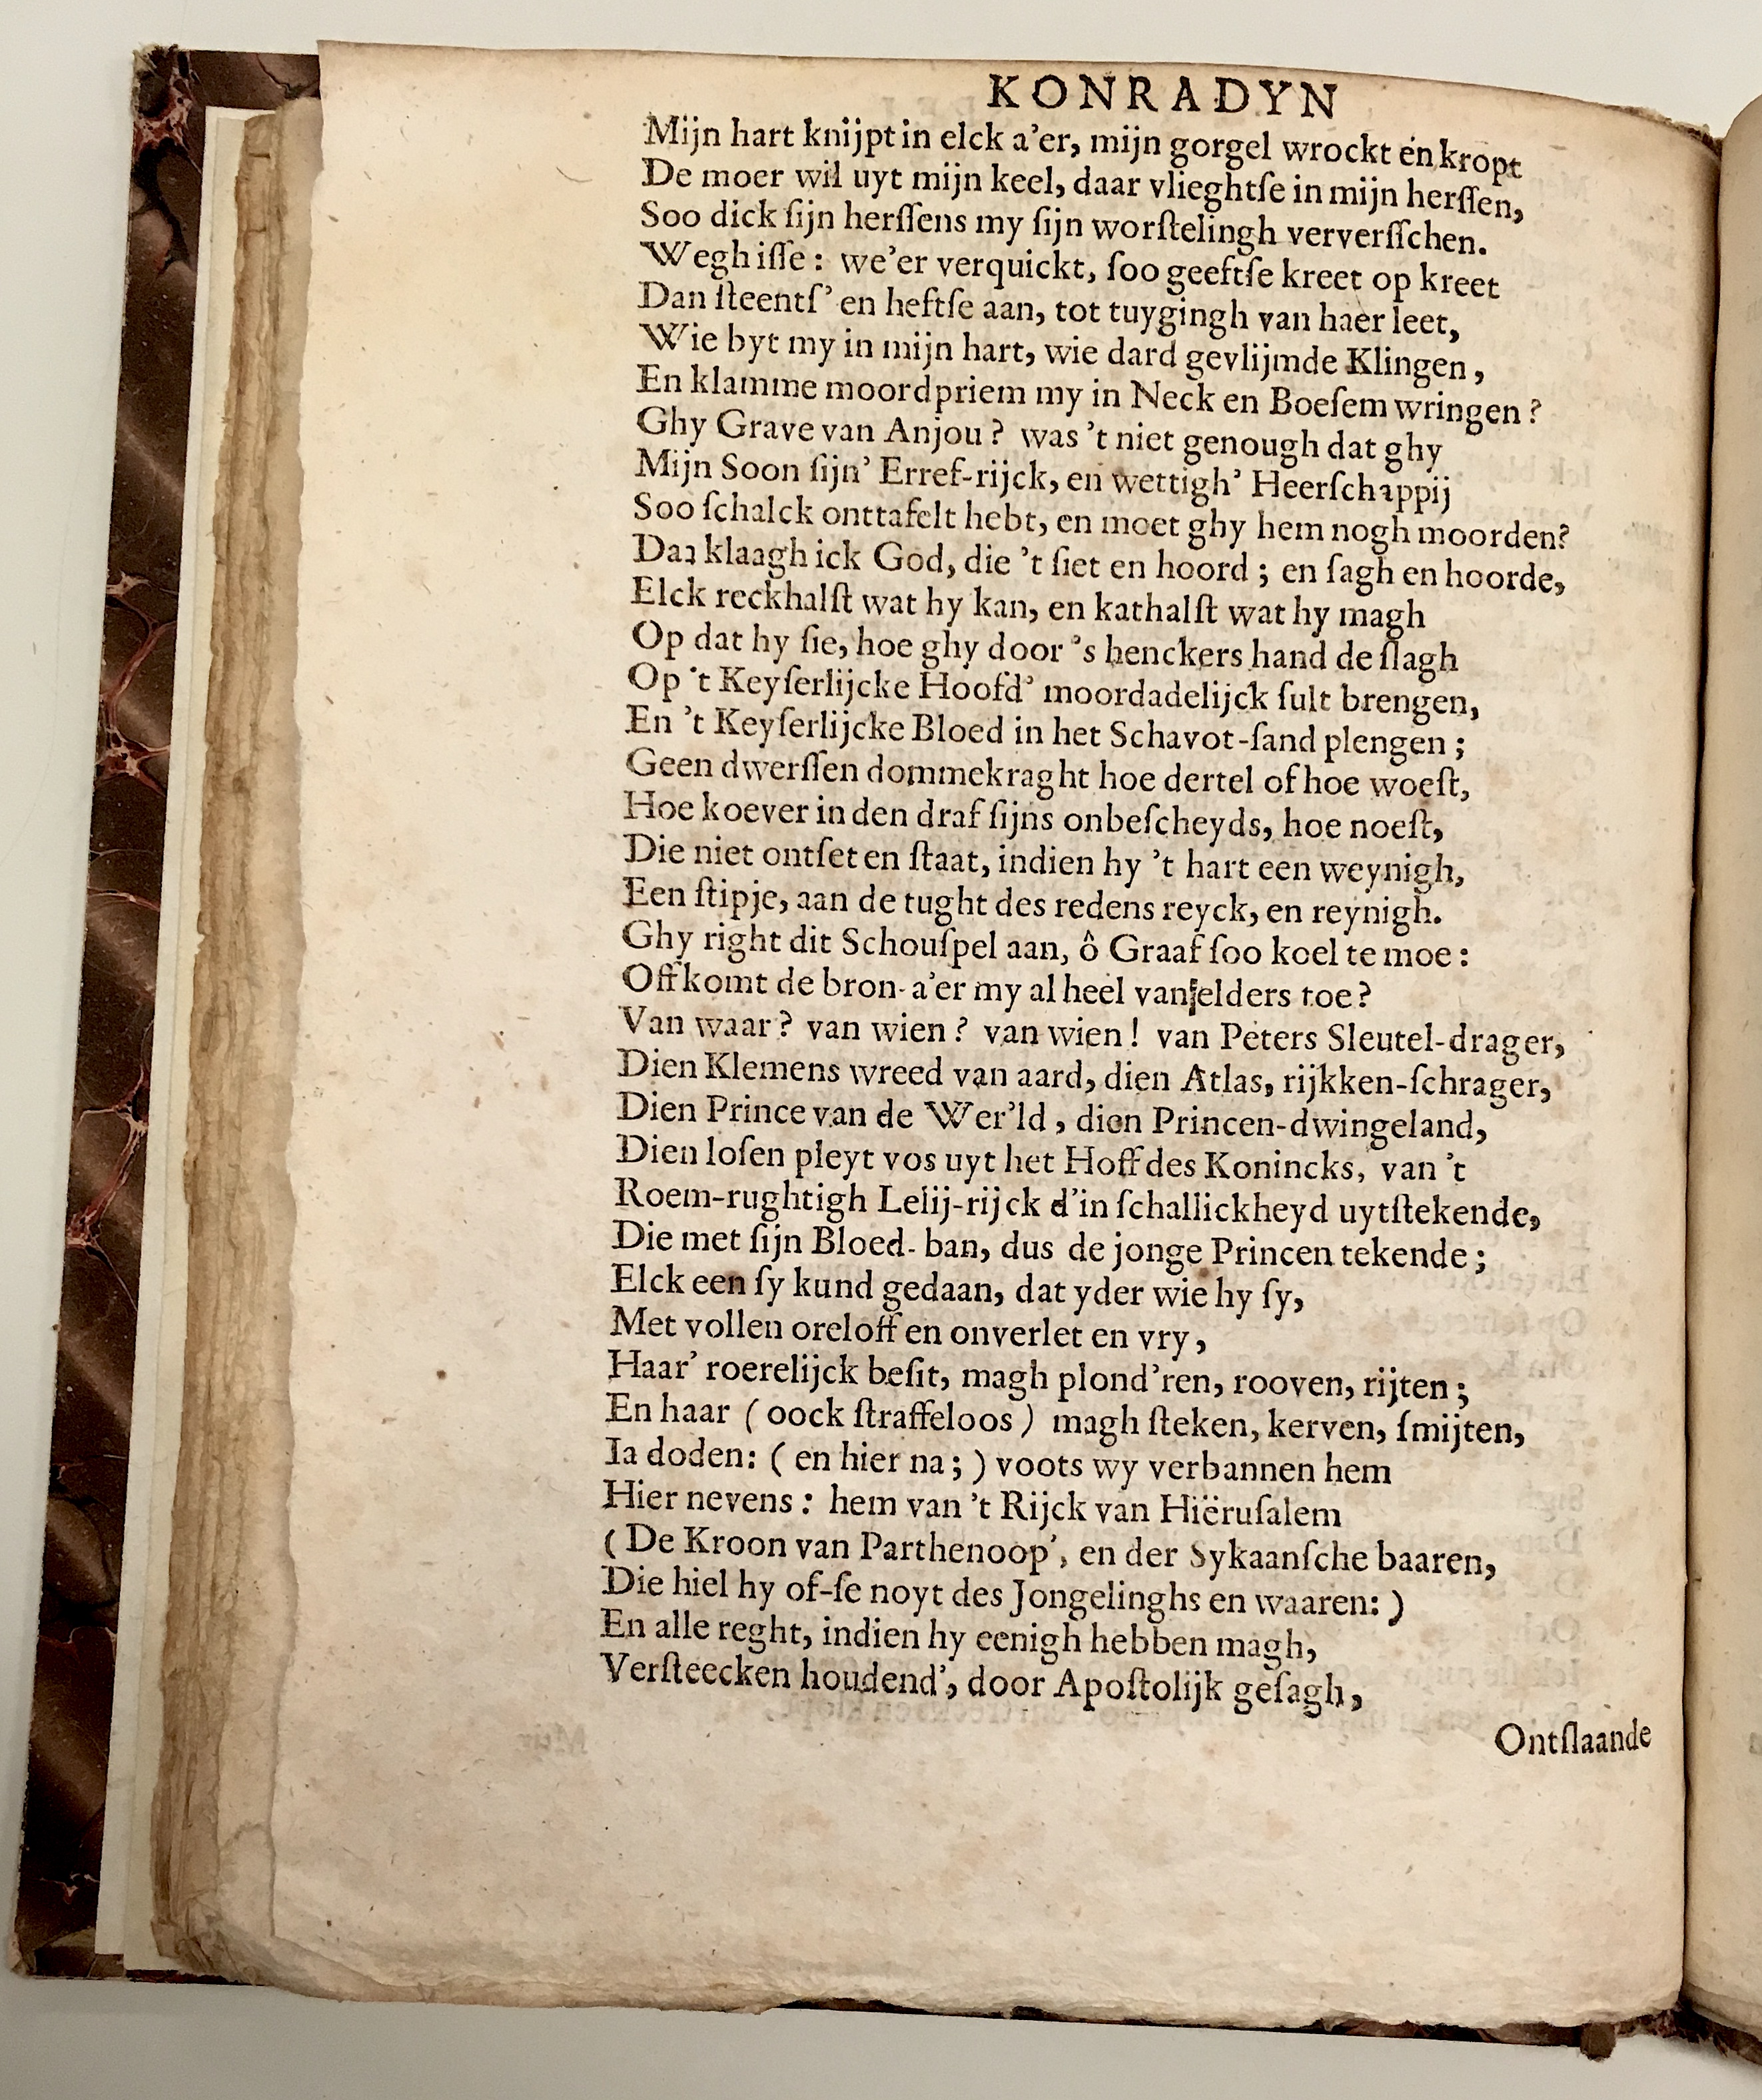 KONRADYN
Mijn hart knijpt in elck a'er, mijn gorgel wrockt en kropt
De moer wil uyt mijn keel, daar vlieghtſe in mijn herſſen,
Soo dick ſijn herſſens my ſijn worſtelingh ververſſchen.
Wegh iſſe: we'er verquickt, ſoo geeftſe kreet op kreet
Dan ſteentſ' en heftſe aan, tot tuygingh van haer leet,
Wie byt my in mijn hart, wie dard gevlijmde Klingen,
En klamme moordpriem my in Neck en Boeſem wringen?
Ghy Grave van Anjou? was 't niet genough dat ghy
Mijn Soon ſijn' Erref-rijck, en wettigh' Heerſchappij
Soo ſchalck onttafelt hebt, en moet ghy hem nogh moorden?
Daa klaagh ick God, die 't ſiet en hoord; en ſagh en hoorde,
Elck reckhalſt wat hy kan, en kathalſt wat hy magh
Op dat hy ſie, hoe ghy door 's henckers hand de ſlagh
Op 't Keyſerlijcke Hoofd' moordadelijck ſult brengen,
En 't Keyſerlijcke Bloed in het Schavot-ſand plengen;
Geen dwerſſen dommekraght hoe dertel of hoe woeſt,
Hoe koever in den draf ſijns onbeſcheyds, hoe noeſt,
Die niet ontſet en ſtaat, indien hy 't hart een weynigh,
Een ſtipje, aan de tught des redens reyck, en reynigh.
Ghy right dit Schouſpel aan, ô Graaf ſoo koel te moe:
Off komt de bron-a'er my al heel van elders toe?
Van waar? van wien? van wien! van Peters Sleutel-drager,
Dien Klemens wreed van aard, dien Atlas, rijkken-ſchrager,
Dien Prince van de Wer'ld, dien Princen-dwingeland,
Dien loſen pleyt vos uyt het Hoff des Konincks, van 't
Roem-rughtigh Lelij-rijck d'in ſchallickheyd uytſtekende,
Die met ſijn Bloed-ban, dus de jonge Princen tekende;
Elck een ſy kund gedaan, dat yder wie hy ſy,
Met vollen oreloff en onverlet en vry,
Haar' roerelijck beſit, magh plond'ren, rooven, rijten;
En haar (oock ſtraffeloos) magh ſteken, kerven, ſmijten,
Ia doden: (en hier na;) voots wy verbannen hem
Hier nevens: hem van 't Rijck van Hiëruſalem
(De Kroon van Parthenoop', en der Sykaanſche baaren,
Die hiel hy of-ſe noyt des Jongelinghs en waaren:)
En alle reght, indien hy eenigh hebben magh,
Verſteecken houdend', door Apoſtolijk geſagh,
Ontſlaande